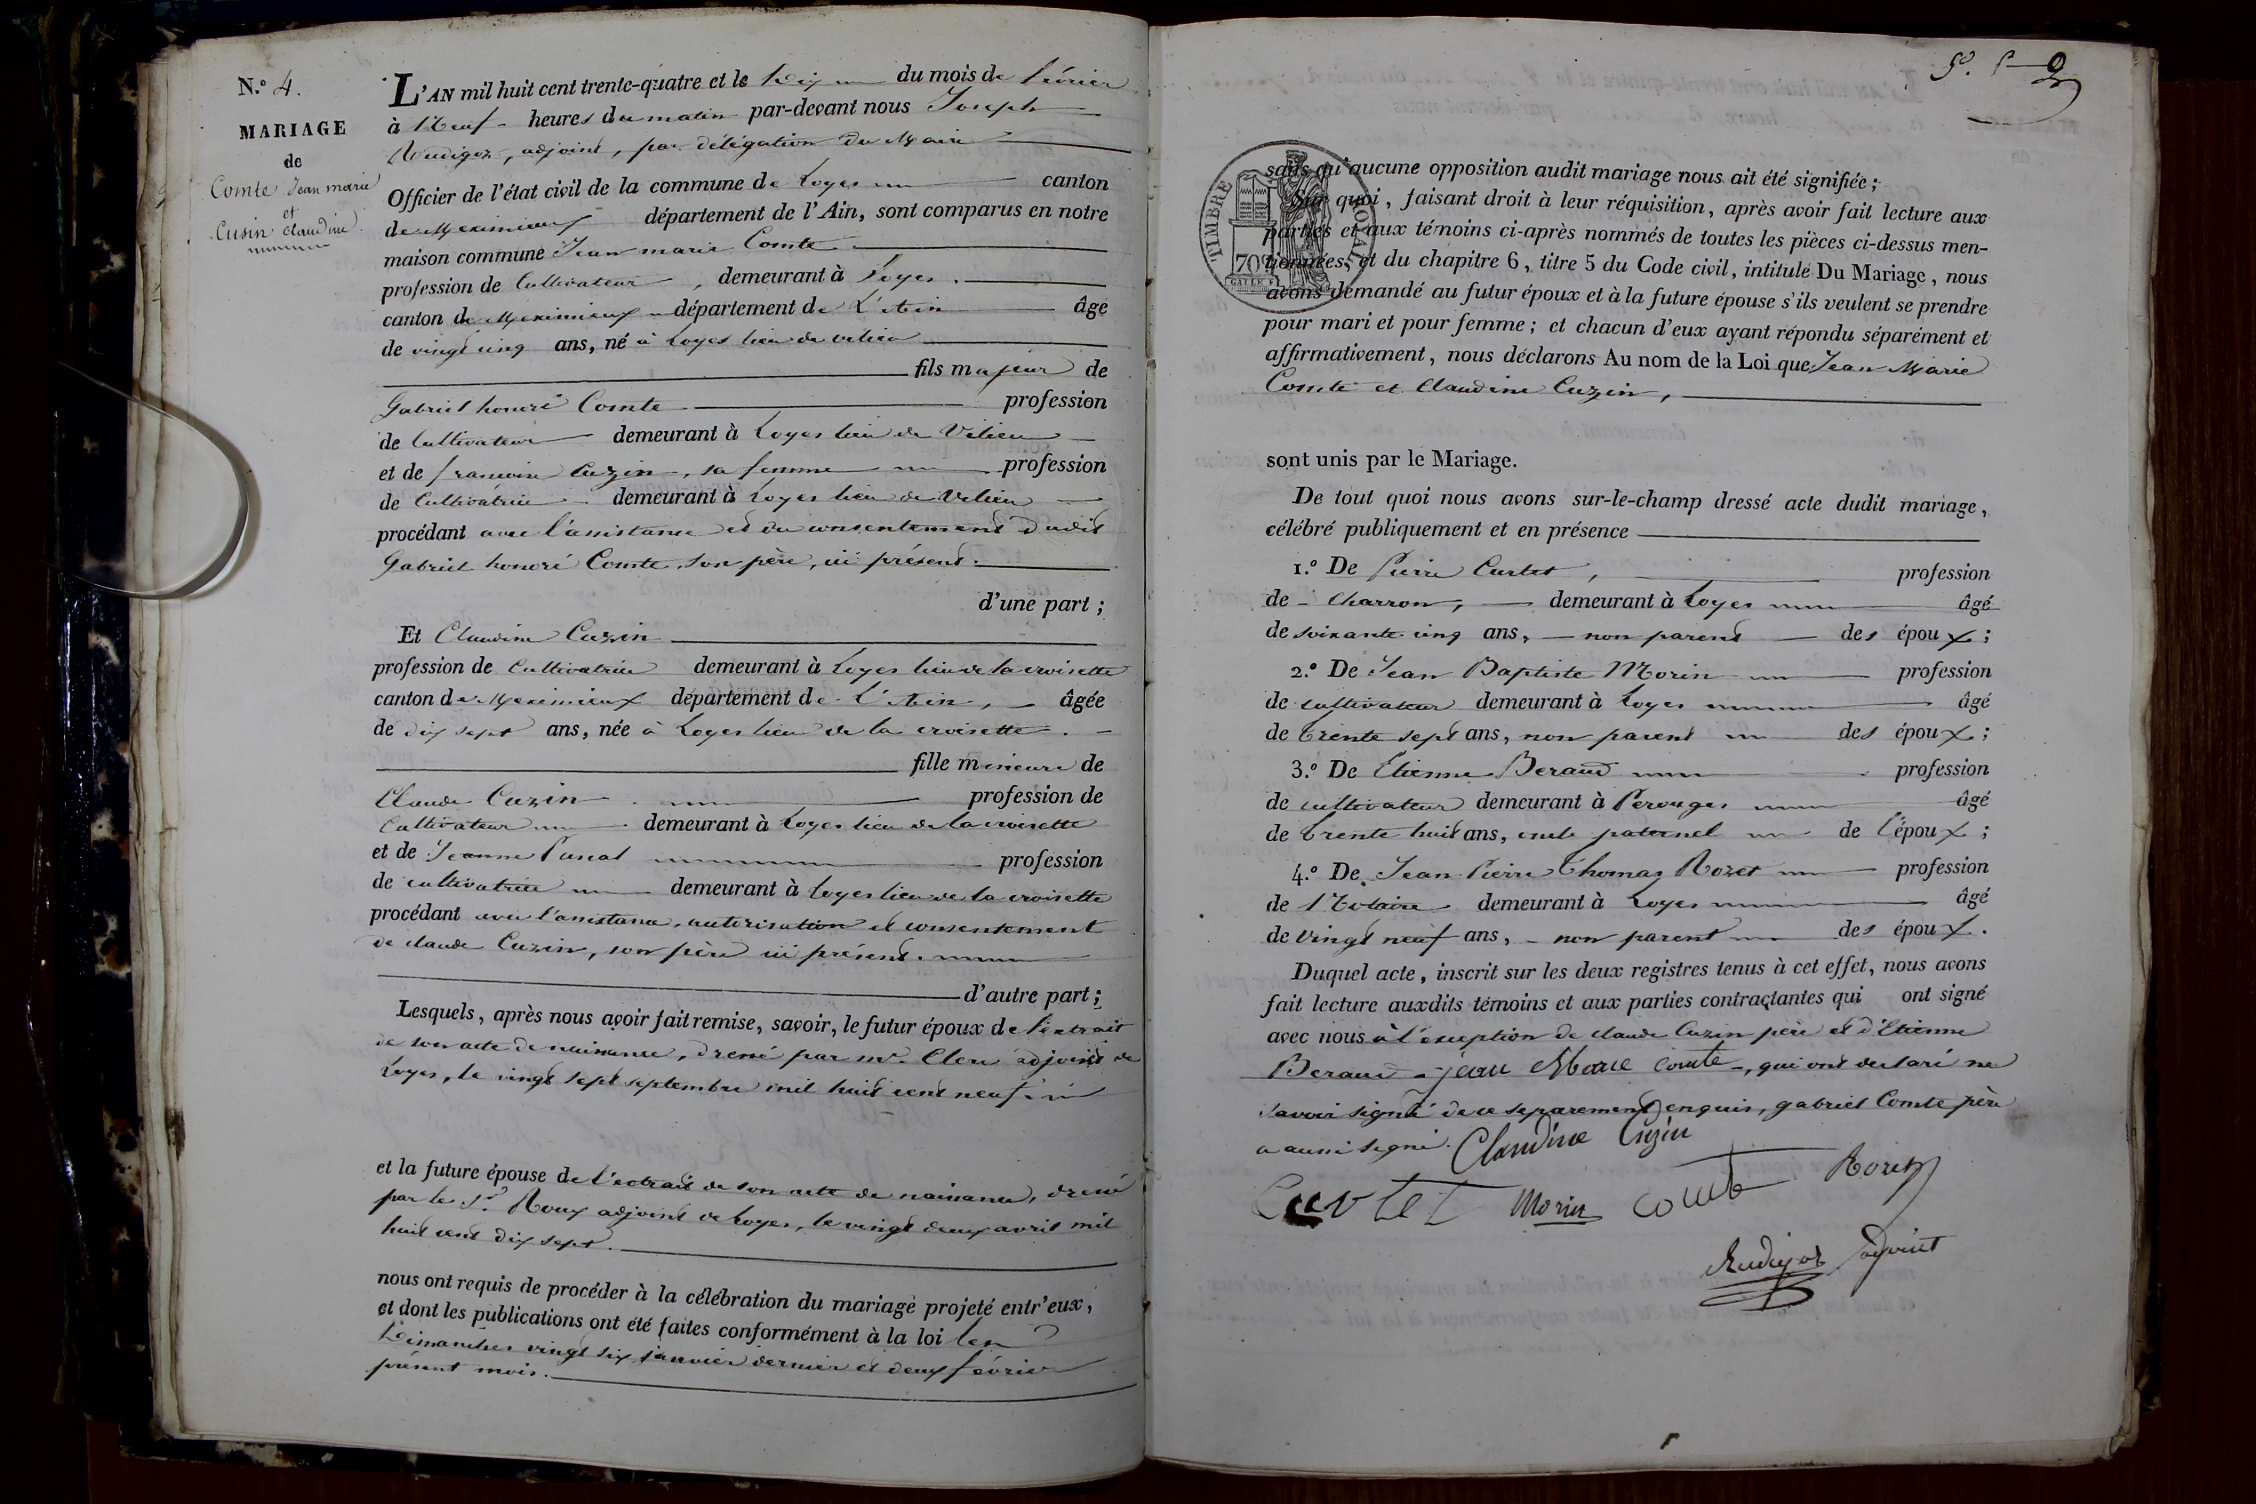 N.º 4.
MARIAGE
de
Comte Jean marie
et
Cusin claudine
L'AN mil huit cent trente-quatre et le Dix du mois de février
à Neuf heures du matin par-devant nous Joseph
adjoint, par délégation du Maire
Officier de l'état civil de la commune de Loyes canton
de Meximieux département de l'Ain, sont comparus en notre
maison commune Jean marie Comte
profession de Cultivateur, demeurant à Loyes.
canton de Meximieux département de L'Ain âgé
de vingt cinq ans, né à Loyes lieu de vilieu
fils majeur de
Gabriel honoré Comte profession
de Cultivateur demeurant à Loyes lieu de Vilieu
et de francoise Cuzin, sa femme profession
de Cultivatrice demeurant à Loyes lieu de Vilieu
procédant avec l'assistance et du consentement dudit
Gabriel honoré Comte, son père, ici présent.
d'une part ;
Et Claudine Cuzin
profession de Cultivatrice demeurant à Loyes lieu de la croisette
canton de Meximieux département de L'Ain, âgée
de dix sept ans, née à Loyes lieu de la croisette.
fille mineure de
Claude Cuzin profession de
Cultivateur demeurant à Loyes lieu de la croisette
et de Jeanne profession
de cultivatrice demeurant à Loyes lieu de la croisette
procédant avec l'assistance, autorisation et consentement
de claude Cuzin, son père ici présent.
d'autre part ;
Lesquels, après nous avoir fait remise, savoir, le futur époux de l'extrait
de son acte de naissance, dressé par mr. Clerc adjoint de
Loyes, le vingt sept septembre mil huit cent neuf
et la future épouse de l'extrait de son acte de naissance, dressé
par le Sr. Roux adjoint de Loyes, le vingt deux avril mil
huit cent dix sept.
nous ont requis de procéder à la célébration du mariage projeté entr'eux,
et dont les publications ont été faites conformément à la loi les
Dimanches vingt six janvier dernier et deux février
présent mois.
TIMBRE ROYAL
70
sans qu'aucune opposition audit mariage nous ait été signifiée ;
Sur quoi, faisant droit à leur réquisition, après avoir fait lecture aux
parties et aux témoins ci-après nommés de toutes les pièces ci-dessus men-
tionnées, et du chapitre 6, titre 5 du Code civil, intitulé Du Mariage, nous
avons demandé au futur époux et à la future épouse s'ils veulent se prendre
pour mari et pour femme ; et chacun d'eux ayant répondu séparément et
affirmativement, nous déclarons Au nom de la Loi que Jean Marie
Comte et Claudine Cuzin,
sont unis par le Mariage.
De tout quoi nous avons sur-le-champ dressé acte dudit mariage,
célébré publiquement et en présence
1.º De Pierre Curtet, profession
de Charron, demeurant à Loyes âgé
de soixante cinq ans, non parent des époux ;
2.º De Jean Baptiste Morin profession
de cultivateur demeurant à Loyes âgé
de trente sept ans, non parent des époux ;
3.º De Etienne Beraud profession
de cultivateur demeurant à Perouges âgé
de trente huit ans, oncle paternel de l'époux ;
4.º De Jean Pierre Thomas Rozet profession
de Notaire demeurant à Loyes âgé
de vingt neuf ans, non parent des époux.
Duquel acte, inscrit sur les deux registres tenus à cet effet, nous avons
fait lecture auxdits témoins et aux parties contractantes qui ont signé
avec nous à l'exception de claude Cuzin père et d'Etienne
Beraud jean Marie comte, qui ont declaré ne
savoir signé de ce separement enquis, gabriel Comte père
a aussi signé. Claudine Cuzin
Curtet Morin comte Rozet
adjoint